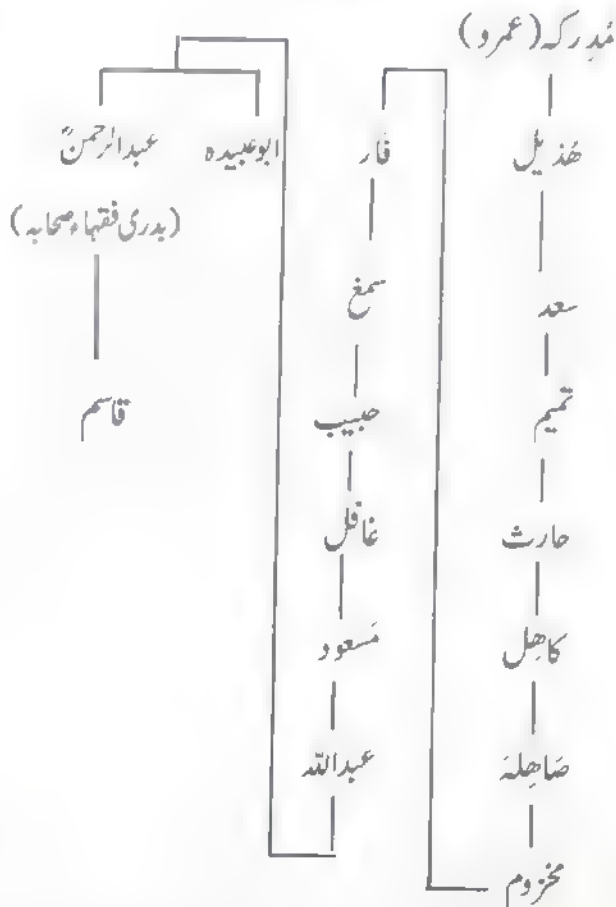 مُدرکہ (عمرو)
ھُذیل
سعد
تمیم
حارث
کاھِل
صَاھِلہ
مخزوم
فار
سمغ
حبیب
غافل
مَسعود
عبداللہ
ابوعبیدہ
عبدالرحمنؓ
(بدری فقہاء صحابہ)
قاسم